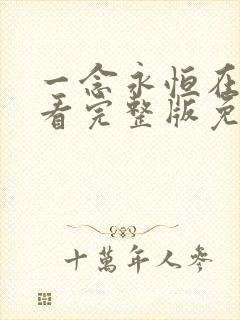 一念永恒在
看完整版免
十萬年人參